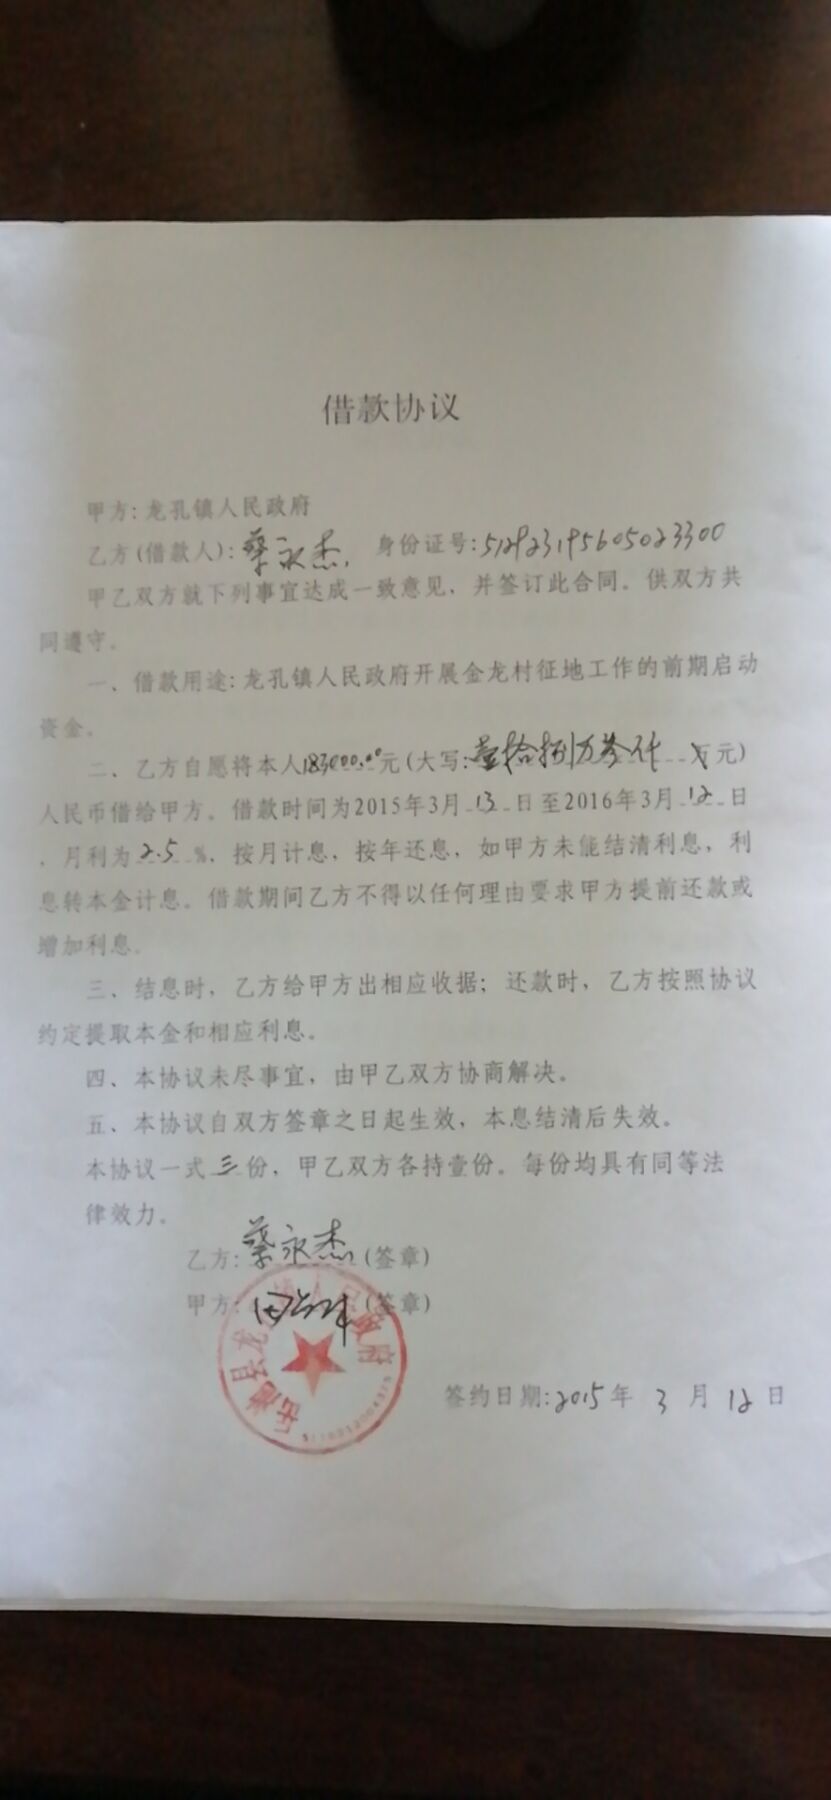 借款协议
甲方：龙孔镇人民政府
乙方(借款人)：蔡永杰 身份证号：512923195605023300
甲乙双方就下列事宜达成一致意见，并签订此合同。供双方共
同遵守。
一、借款用途：龙孔镇人民政府开展金龙村征地工作的前期启动
资金。
二、乙方自愿将本人183000.00元(大写：壹拾捌万叁仟 元)
人民币借给甲方。借款时间为2015年3月13日至2016年3月12日
，月利为2.5%，按月计息，按年还息，如甲方未能结清利息，利
息转本金计息。借款期间乙方不得以任何理由要求甲方提前还款或
增加利息。
三、结息时，乙方给甲方出相应收据；还款时，乙方按照协议
约定提取本金和相应利息。
四、本协议未尽事宜，由甲乙双方协商解决。
五、本协议自双方签章之日起生效，本息结清后失效。
本协议一式三份，甲乙双方各持壹份。每份均具有同等法
律效力。
乙方：蔡永杰(签章)
甲方： (签章)
县龙 镇人民政府
签约日期：2015年 3 月 12 日